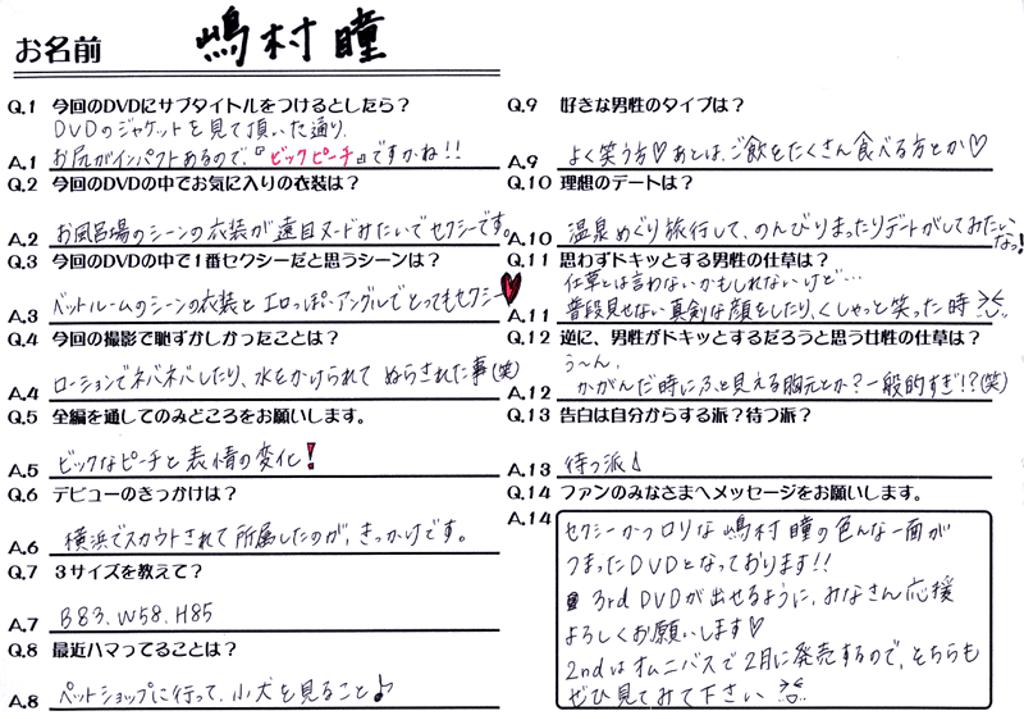 お名前 嶋村 瞳
Q.1 今回のDVDにサブタイトルをつけるとしたら？
DVDのジャケットを見て頂いた通り、
A.1 お尻がインパクトあるので、『ビックピーチ』ですかね！！
Q.2 今回のDVDの中でお気に入りの衣装は？
A.2 お風呂場のシーンの衣装が遠目ヌードみたいでセクシーです。
Q.3 今回のDVDの中で1番セクシーだと思うシーンは？
A.3 ベットルームのシーンの衣装とエロっぽいアングルでとってもセクシー♥
Q.4 今回の撮影で恥ずかしかったことは？
A.4 ローションでネバネバしたり、水をかけられて ぬらされた事(笑)
Q.5 全編を通してのみどころをお願いします。
A.5 ビックなピーチと表情の変化！
Q.6 デビューのきっかけは？
A.6 横浜でスカウトされて所属したのが、きっかけです。
Q.7 3サイズを教えて？
A.7 B83. W58. H85
Q.8 最近ハマってることは？
A.8 ペットショップに行って、小犬を見ること♪
Q.9 好きな男性のタイプは？
A.9 よく笑う方♡あとは、ご飯をたくさん食べる方とか♡
Q.10 理想のデートは？
A.10 温泉めぐり旅行して、のんびりまったりデートがしてみたい
なっ！
Q.11 思わずドキッとする男性の仕草は？
仕草とは言わないかもしれないけど…
A.11 普段見せない真剣な顔をしたり、くしゃっと笑った時
Q.12 逆に、男性がドキッとするだろうと思う女性の仕草は？
う〜ん、
A.12 かがんだ時にふと見える胸元とか？一般的すぎ！？(笑)
Q.13 告白は自分からする派？待つ派？
A.13 待つ派♪
Q.14 ファンのみなさまへメッセージをお願いします。
A.14 セクシーかつロリな嶋村瞳の色んな一面が
つまったDVDとなっております！！
3rd DVDが出せるように、みなさん応援
よろしくお願いします♡
2ndはオムニバスで2月に発売するので、そちらも
ぜひ見てみて下さい